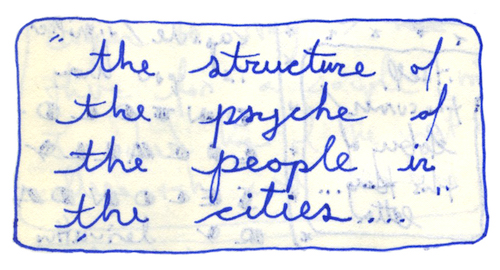 "the structure of
the psyche of
the people in
the cities..."